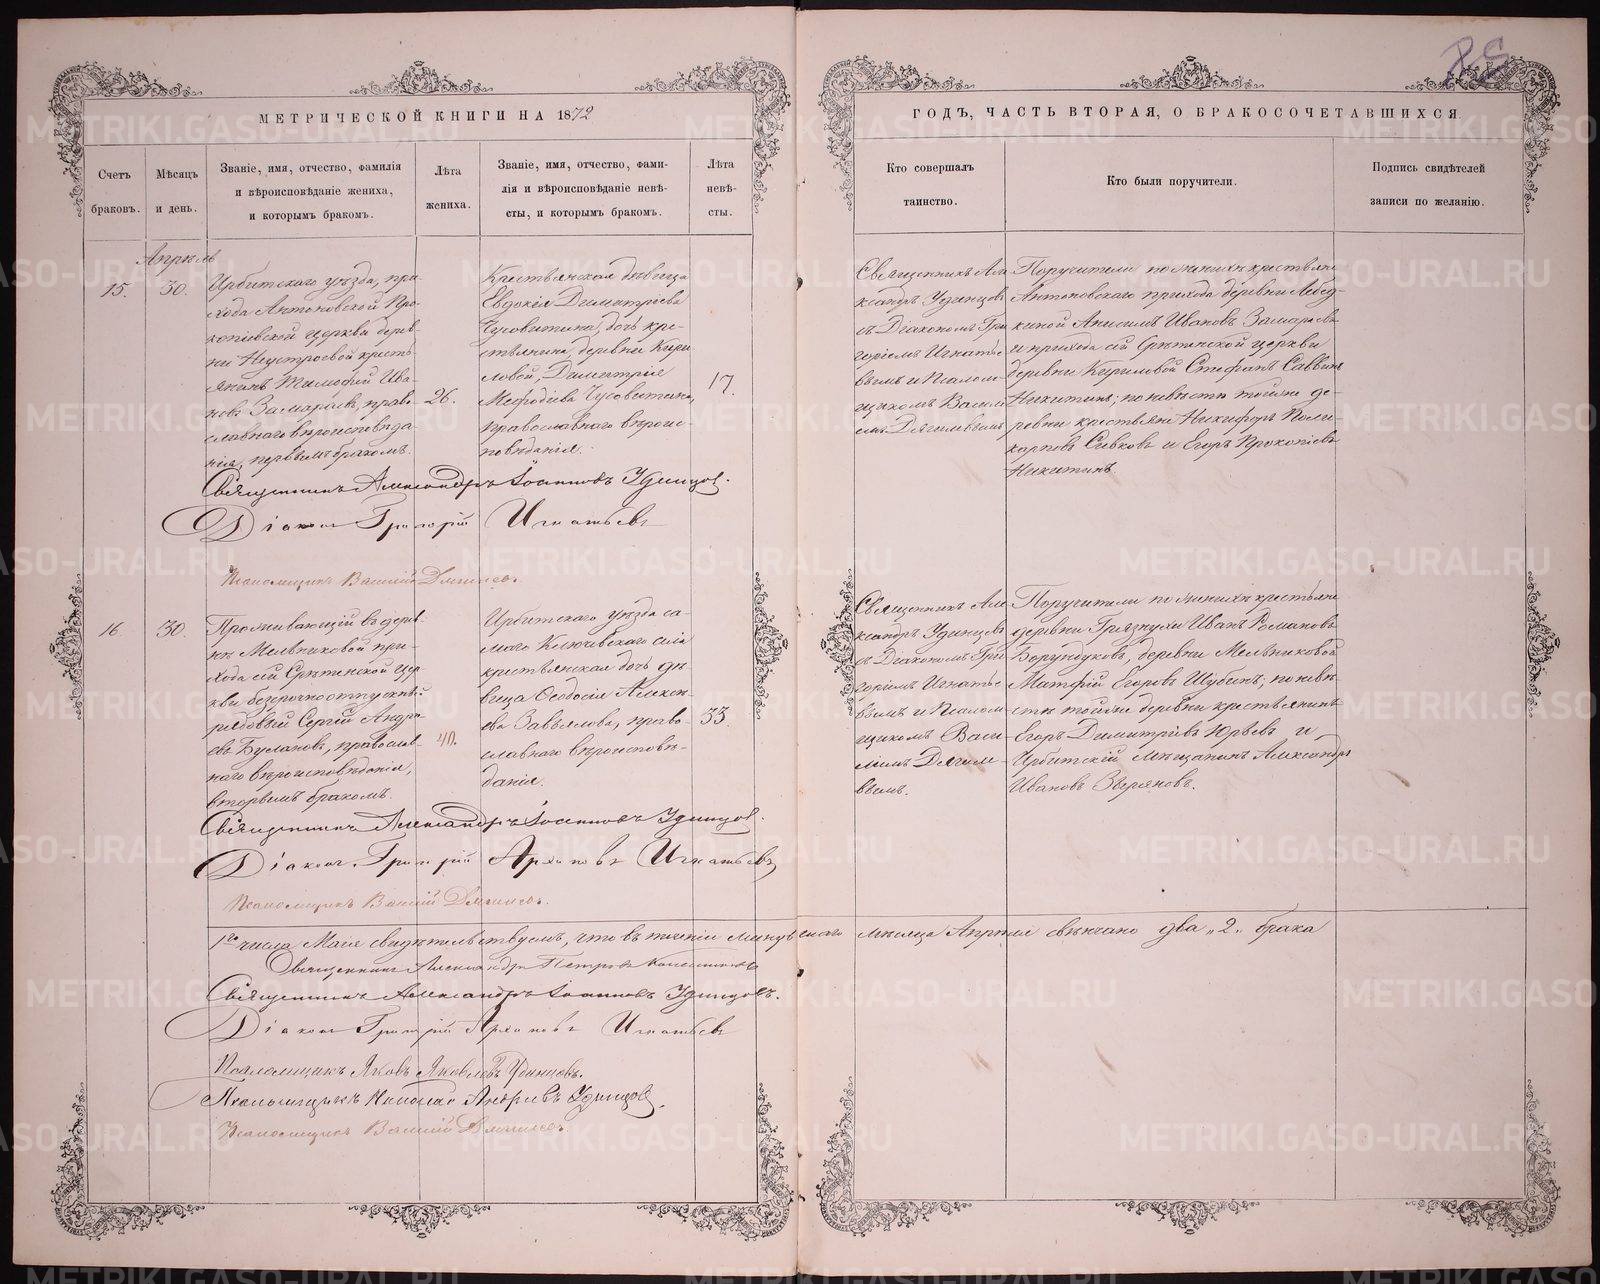 МЕТРИЧЕСКОЙ КНИГИ НА 1872
ГОДЪ, ЧАСТЬ ВТОРАЯ, О БРАКОСОЧЕТАВШИХСЯ.
Счетъ браковъ.
Мѣсяцъ и день.
Званіе, имя, отчество, фамилія
и вѣроисповѣданіе жениха,
и которымъ бракомъ.
Лѣта
жениха.
Званіе, имя, отчество, фами-
лія и вѣроисповѣданіе невѣ-
сты, и которымъ бракомъ.
Лѣта
невѣ-
сты.
Кто совершалъ
таинство.
Кто были поручители.
Подпись свидѣтелей
записи по желанію.
Апрѣль
15.
30.
Ирбитскаго уѣзда, при-
хода Антоновской Про-
копіевской церкви дерев-
ни Неустроевой кресть-
янинъ Тимофей Ива-
новъ Замараевъ, право-
славнаго вѣроисповѣда-
нія, первымъ бракомъ.
26.
Крестьянская дѣвица
Евдокія Димитріева
Чусовитина, дочь кре-
стьянина деревни Кири-
ловой, Димитрія
Меѳодіева Чусовитина,
православнаго вѣроис-
повѣданія.
17.
Священникъ Але
ксандръ Удинцовъ
съ Діакономъ Гри
горіемъ Игнатье
вымъ и Псалом-
щикомъ Васили
емъ Дягилевымъ
Поручители по женихѣ крестьяне
Антоновскаго прихода деревни Лебед-
киной Анисимъ Ивановъ Замараевъ
и прихода сей Срѣтенской церкви
деревни Кириловой Стефанъ Саввинъ
Никитинъ; по невѣстѣ тойже де-
ревни крестьяне Никифоръ Поли-
карповъ Сивковъ и Егоръ Прокопіевъ
Никитинъ.
Священникъ Александръ Іоанновъ Удинцов.
Діаконъ Григорій Игнатьевъ
Псаломщикъ Василій Дягилевъ.
16.
30.
Проживающій въ дерев-
нѣ Мельниковой при-
хода сей Срѣтенской цер-
кви безсрочноотпускный
рядовый Сергій Андре-
евъ Булановъ, православ-
наго вѣроисповѣданія,
вторымъ бракомъ.
40.
Ирбитскаго уѣзда са-
маго Ключевскаго села
крестьянская дочь дѣ-
вица Ѳеодосія Алексѣ-
ева Завьялова, право-
славнаго вѣроисповѣ-
данія.
33.
Священникъ Але
ксандръ Удинцовъ
съ Діакономъ Гри
горіемъ Игнатье
вымъ и Псалом
щикомъ Васи-
ліемъ Дягиле-
вымъ.
Поручители по женихѣ крестьяне
деревни Грязнухи Иванъ Романовъ
Борундуковъ, деревни Мельниковой
Матфій Егоровъ Шубинъ; по невѣ-
стѣ тойже деревни крестьянинъ
Егоръ Димитріевъ Юрьевъ и
Ирбитскій мѣщанинъ Александръ
Ивановъ Зверяновъ.
Священникъ Александръ Іоанновъ Удинцов.
Діаконъ Григорій Архиповъ Игнатьевъ
Псаломщикъ Василій Дягилевъ.
1го числа Маія свидѣтельствуемъ, что въ теченіи минувшаго мѣсяца Апрѣля вѣнчано два „2„ брака
Священникъ Александръ Петровъ
Священникъ Александръ Іоанновъ Удинцовъ.
Діаконъ Григорій Архиповъ Игнатьевъ
Псаломщикъ Яковъ Яковлевъ Удинцовъ.
Псаломщикъ Николай Андреевъ Удинцов.
Псаломщикъ Василій Дягилевъ.
METRIKI.GASO-URAL.RU